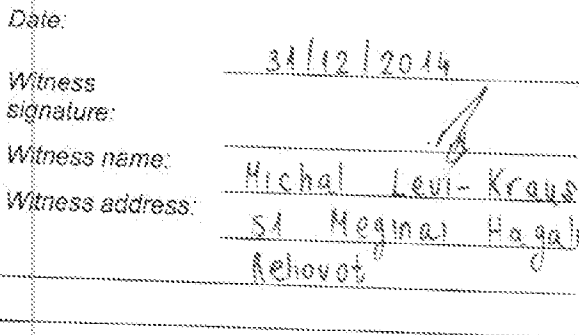 Date:
31/12/2014
Witness
signature:
Witness name:
Michal Levi-Kraus
Witness address:
51 Meginai Hagali
Rehovot